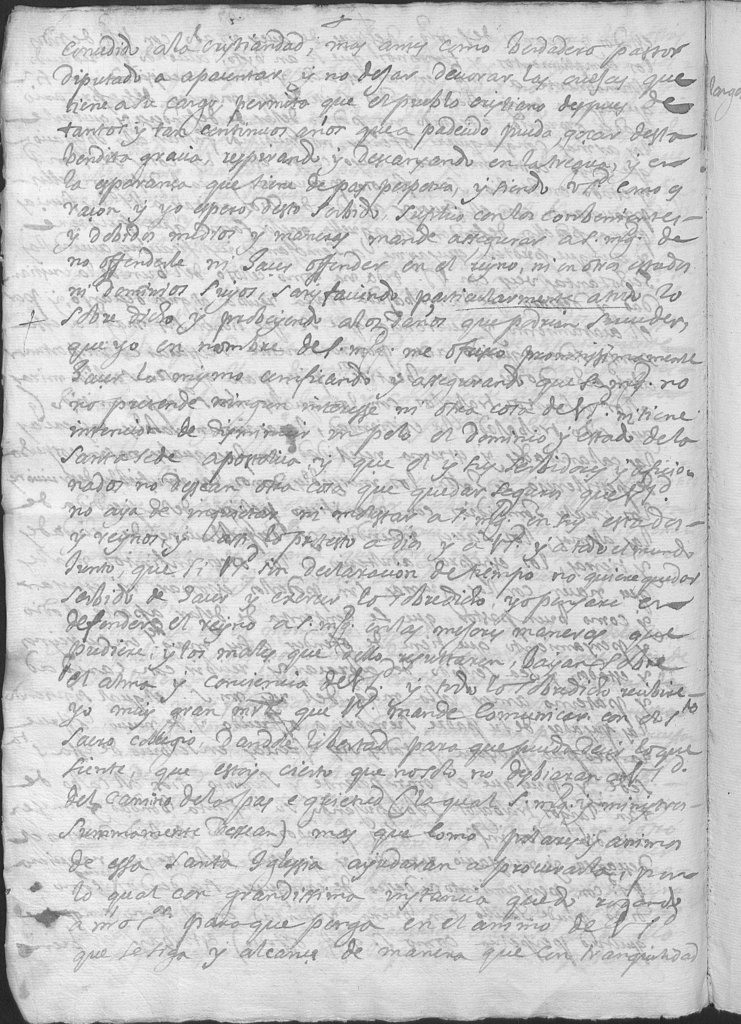 concedido a la cristiandad, mas antes como berdadero pastor
diputado a apacentar y no dejar devorar las ovejas que
tiene a su cargo, permita que el pueblo cristiano despues de
tantos y tan continuos años que a padecido pueda gozar desta
bendita gracia, respirando y descansando en la tregua, y en
la esperança que tiene de paz perpetua, y siendo V. Sd. como q
razon y yo espero, desto serbido, suplico con los conbenientes
y debidos medios y maneras, mande assegurar a S. mgd. de
no offenderle ni hacer offender en el reyno, ni en otros estados
ni dominios suyos, satisfaciendo particularmente a todo lo
sobre dicho y probeyendo a los daños que podrian suceder,
que yo en nombre de S. mgd. me offrezco prontissimamente
hacer lo mismo certificando y assegurando que su mgd. no
no pretende ningun interesse ni otra cosa de V. Sd. ni tiene
intencion de disminuir un pelo el dominio y estado de la
Santa sede apostolica y que el y sus serbidores y aficio
nados no desean otra cosa que quedar seguros que V. Sd.
no aya de inquietar ni molestar a S. mgd. en sus estados
y reynos, y assi lo protesto a dios y a V. Sd. y a todo el mundo
junto, que si V. Sd. sin declaracion de tiempo no quiere quedar
serbido de hacer y executar lo sobredicho, yo pensare en
defender el reyno a S. mgd. en las mejores maneras que
pudiere, y los males que dello resultaren, vayan sobre
el alma y conciencia de V. Sd. y todo lo sobredicho recibire
yo muy gran mrd. que V. Sd. mande comunicar con el Sto
Sacro collegio dandole libertad para que pueda decir lo que
siente, que estoy cierto que no solo no desbiaran a V. Sd.
del camino de la paz e quietud (la qual S. mgd. y ministros
summamente dessean) mas que como pilares y animos
de essa Santa Iglesia ayudaran a procurarla, por
lo qual con grandissima instancia quedo rogando
a nro Sor para que ponga en el animo de V. Sd.
que se siga y alcance de manera que con tranquilidad